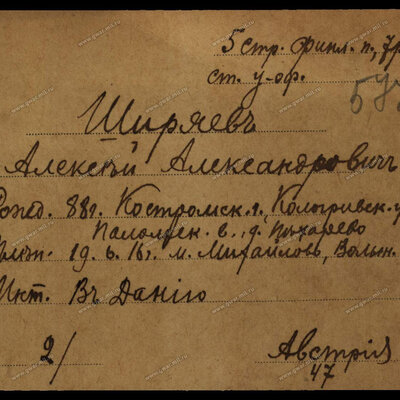 5 стр. Финл. п., 7р
ст. у-оф.
Ширяевъ
Алексѣй Александровичъ
Рожд. 88г. Костромск. г., Кологривск. у
Паломск. в., д. Пыхарево
19. 6. 16 г. м. Михайловъ, Волын.
Инт. Въ Данію
2/
Австрія
47